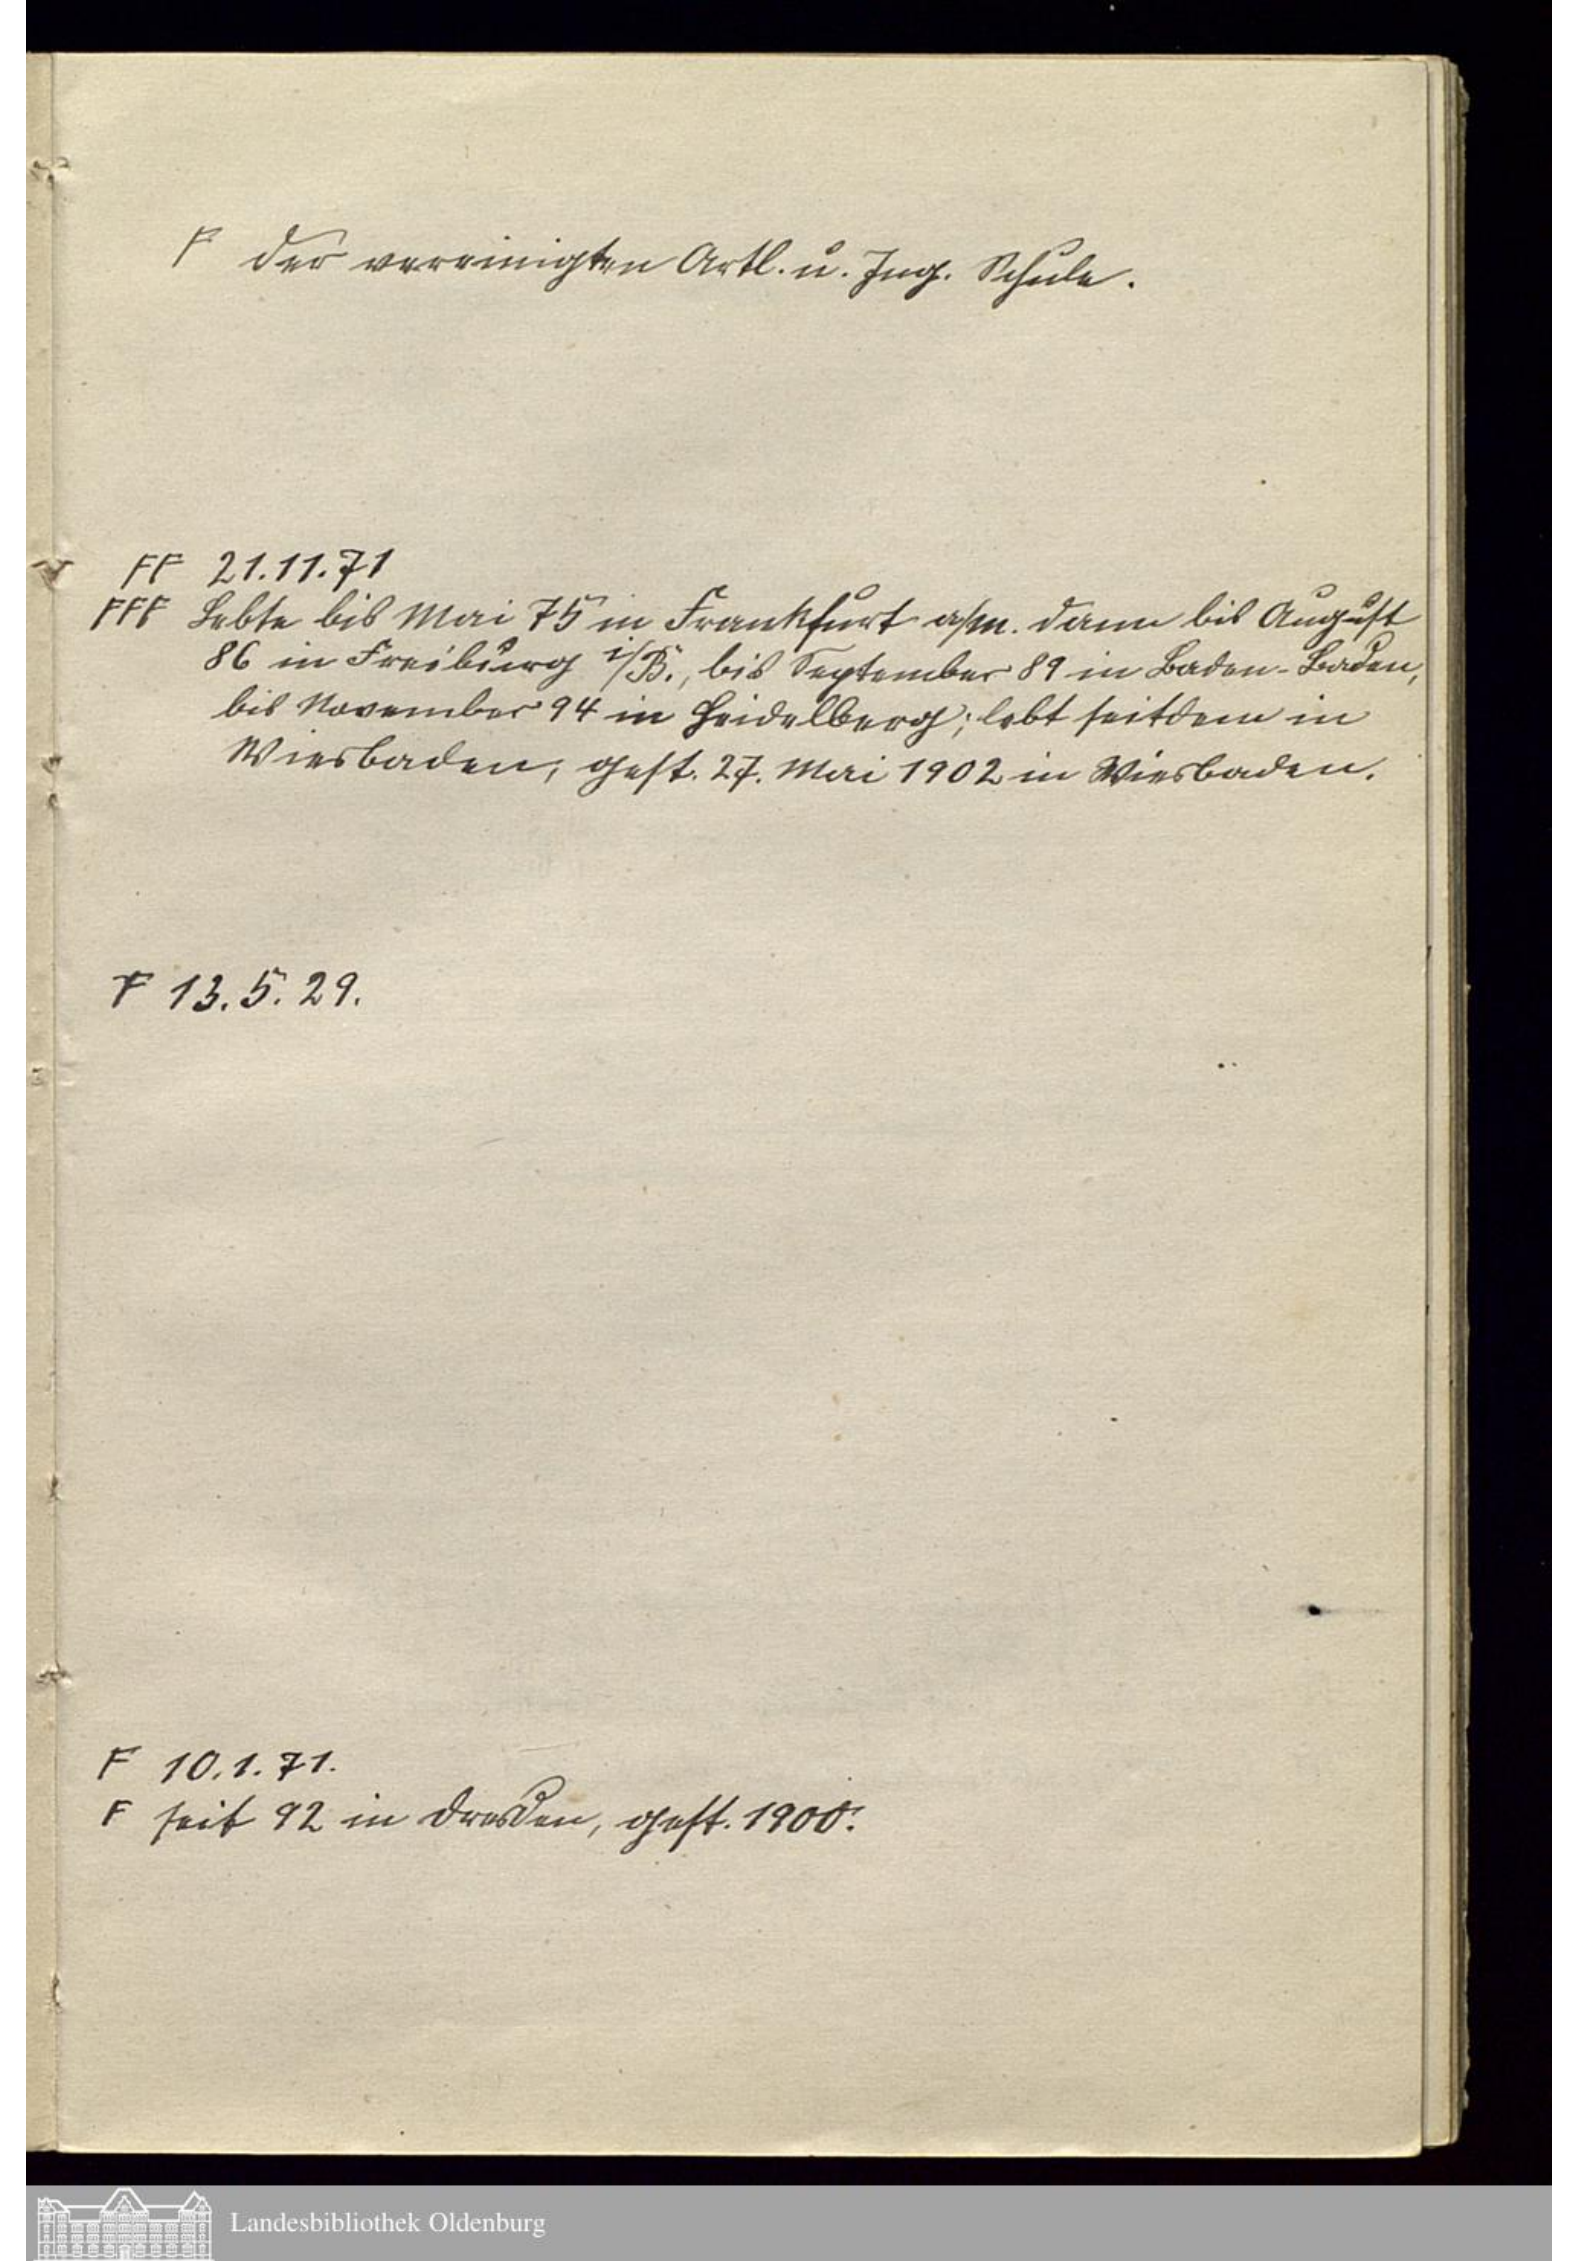 F der vereinigten Artl. u. Ing. Schule.
FF 21.11.71
FFF Lebte bis Mai 75 in Frankfurt a/M. dann bis August
86 in Freiburg i/B., bis September 89 in Baden-Baden,
bis November 94 in Heidelberg; lebt seitdem in
Wiesbaden, gest. 27. Mai 1902 in Wiesbaden.
F 13.5.29.
F 10.1.71.
F seit 92 in Dresden, gest. 1900.
Landesbibliothek Oldenburg